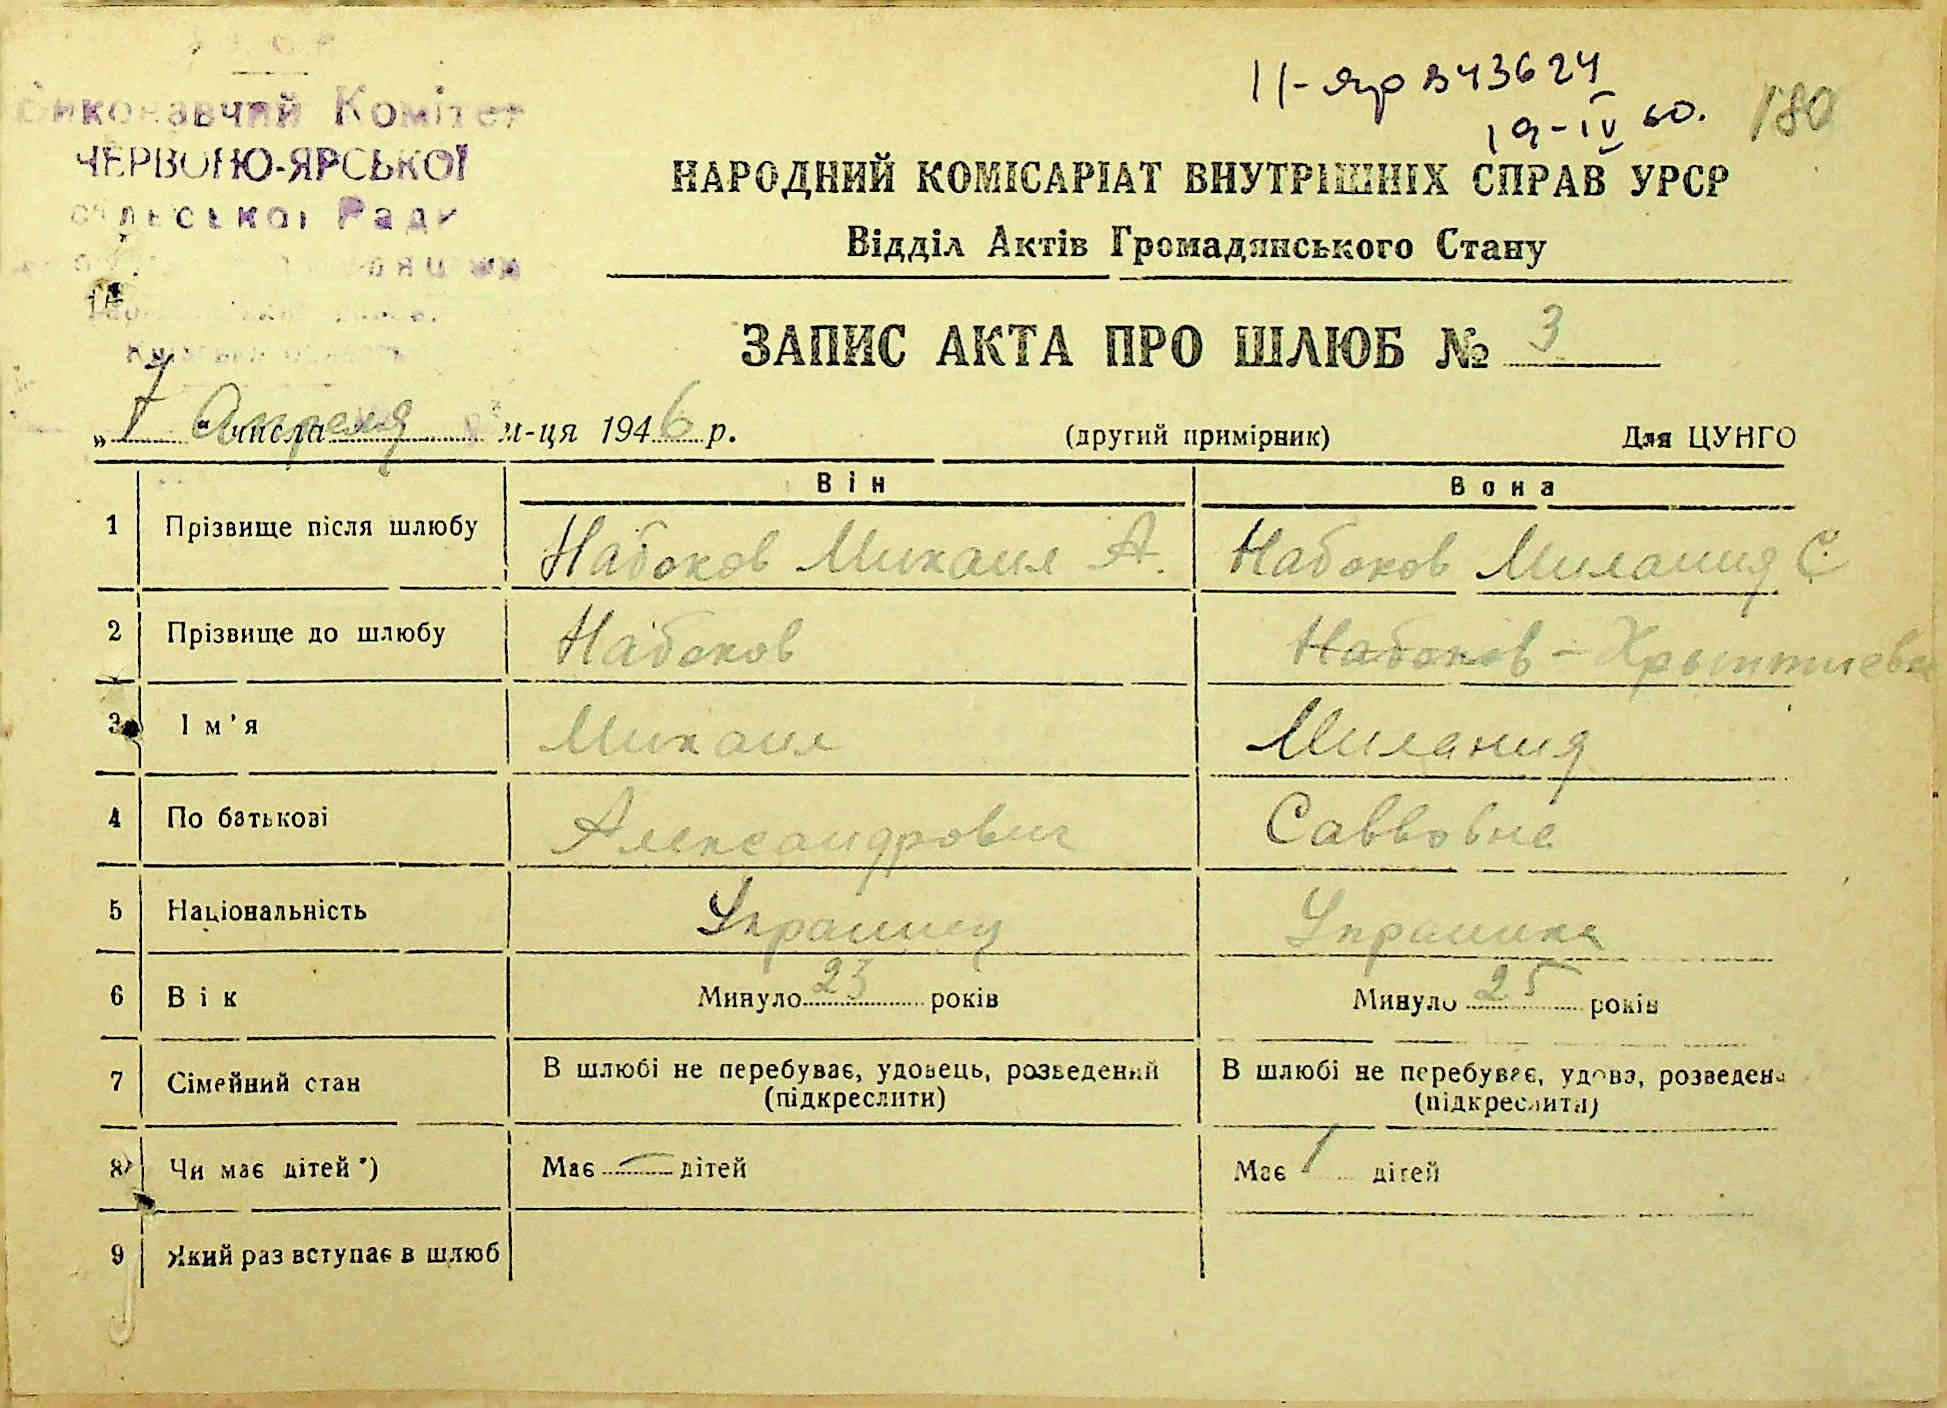 Виконавчий Комітет
ЧЕРВОНО-ЯРСЬКОЇ
сільської Ради
II-яр 043624
19-IV 60.
180
НАРОДНИЙ КОМІСАРІАТ ВНУТРІШНІХ СПРАВ УРСР
Відділ Актів Громадянського Стану
ЗАПИС АКТА ПРО ШЛЮБ № 3
„7" Апреля числа м-ця 1946 р. (другий примірник) Для ЦУНГО
Він Вона
1 Прізвище після шлюбу Набоков Михаил А. Набоков Милания С
2 Прізвище до шлюбу Набоков Набоков -
3 Ім'я Михаил Милания
4 По батькові Александрович Саввовна
5 Національність Украинец Украинка
6 Вік Минуло 23 років Минуло 25 років
7 Сімейний стан В шлюбі не перебуває, удовець, розведений (підкреслити) В шлюбі не перебуває, удова, розведена (підкреслити)
8 Чи має дітей*) Має — дітей Має 1 дітей
9 Який раз вступає в шлюб